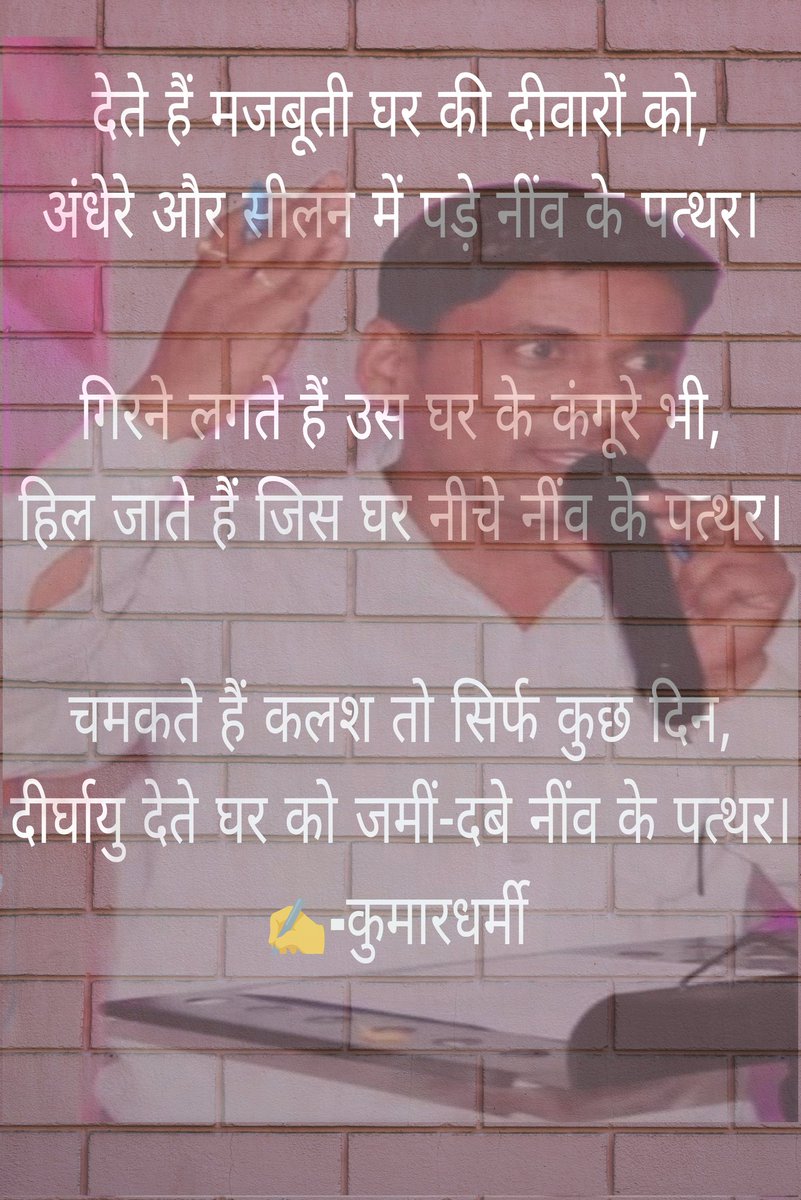 देते हैं मजबूती घर की दीवारों को,
अंधेरे और सीलन में पड़े नींव के पत्थर।
गिरने लगते हैं उस घर के कंगूरे भी,
हिल जाते हैं जिस घर नीचे नींव के पत्थर।
चमकते हैं कलश तो सिर्फ कुछ दिन,
दीर्घायु देते घर को जमीं-दबे नींव के पत्थर।
✍️-कुमारधर्मी